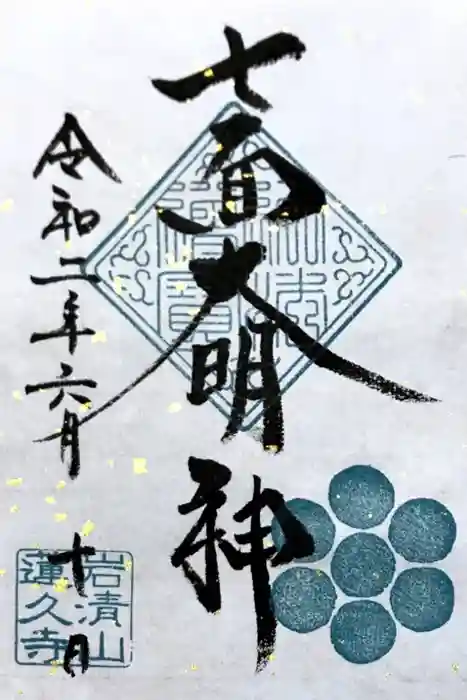 七面大明神
佛法
僧寶
令和二年六月
十日
岩清山
蓮久寺